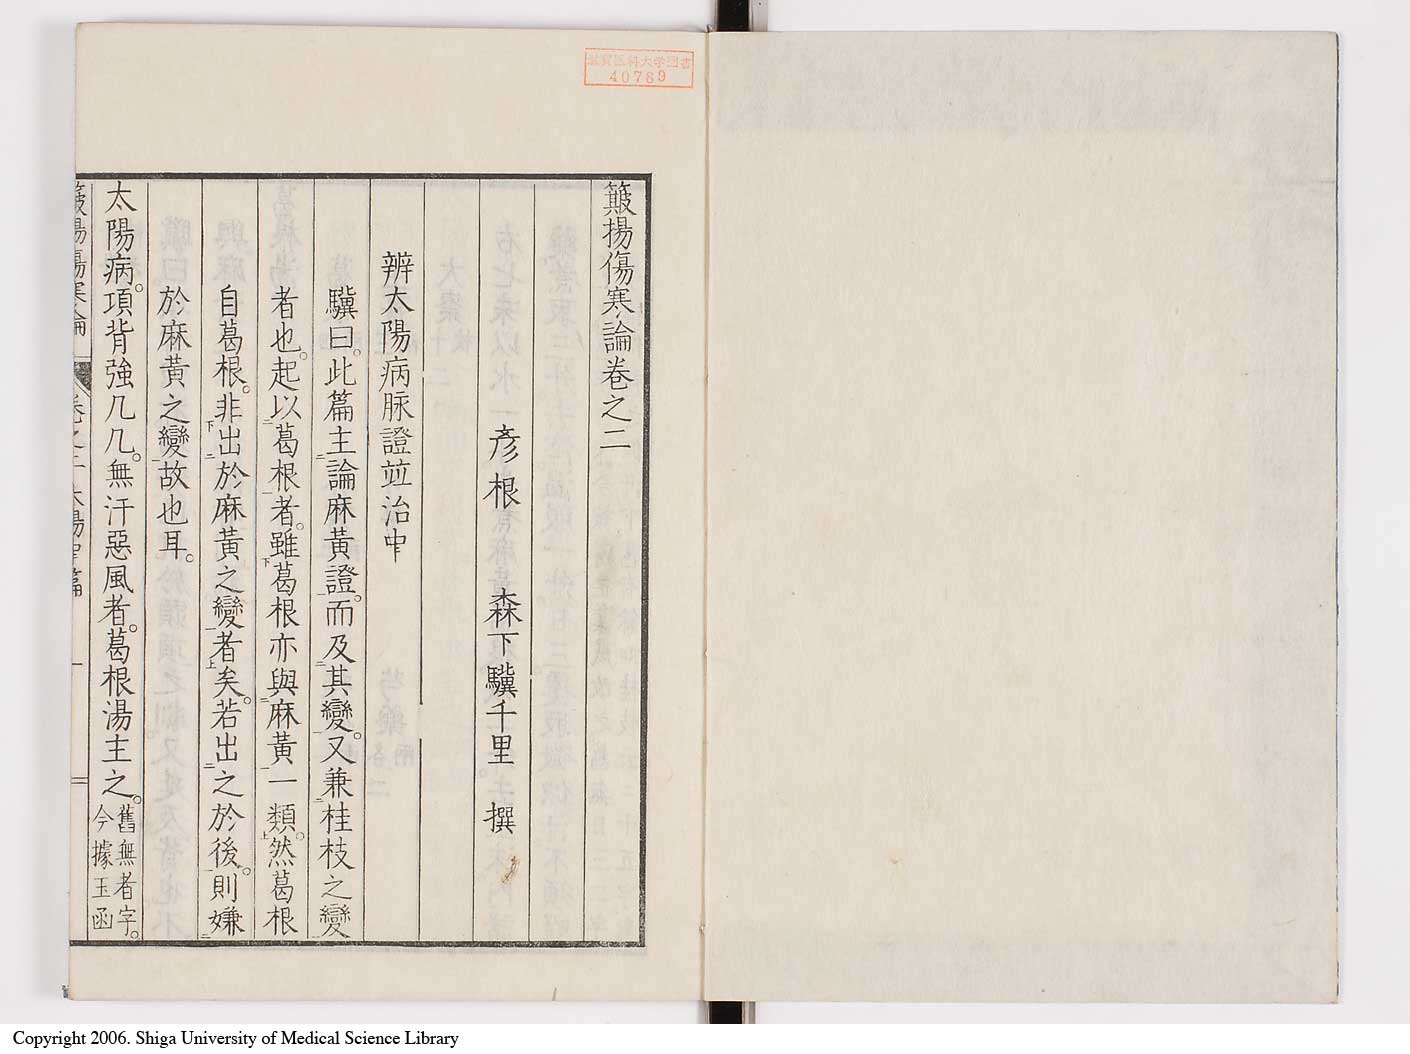 滋賀医科大学図書
40789
簸揚傷寒論卷之二
彥根 森下驥千里 撰
辨太陽病脉證竝治中
驥曰。此篇主論麻黃證。而及其變。又兼桂枝之變
者也。起以葛根者。雖葛根亦與麻黃一類。然葛根
自葛根。非出於麻黃之變者矣。若出之於後。則嫌
於麻黃之變故也耳。
太陽病。項背強几几。無汗惡風者。葛根湯主之。舊無者字。今據玉函
簸揚傷寒論 卷之二 太陽中篇 一
Copyright 2006. Shiga University of Medical Science Library